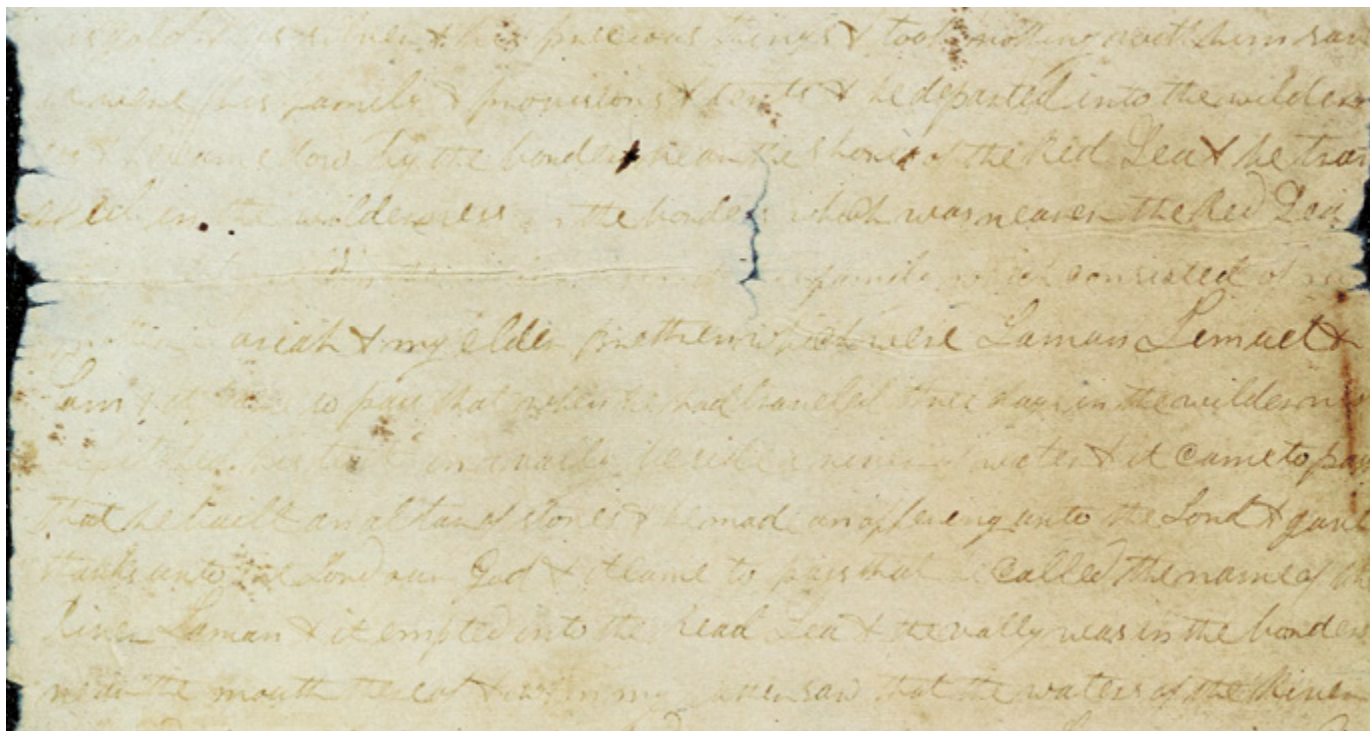 gold & his silver & his precious things & took nothing with him save
it were his family & provisions & tents & he departed into the wilder
ness & he came down by the borders near the shore of the Red Sea & he trav
eled in the wilderness in the borders which was nearer the Red Sea
family which consisted of my
mother Sariah & my elder brethren which were Laman Lemuel &
Sam & it came to pass that when he had traveled three days in the wilderness
he pitched his tent in a vally beside a river of water & it came to pass
that he built an altar of stones & he made an offering unto the Lord & gave
thanks unto the Lord our God & it came to pass that he called the name of the
River Laman & it emptied into the head Sea & the vally was in the borders
near the mouth thereof & when my father saw that the waters of the River